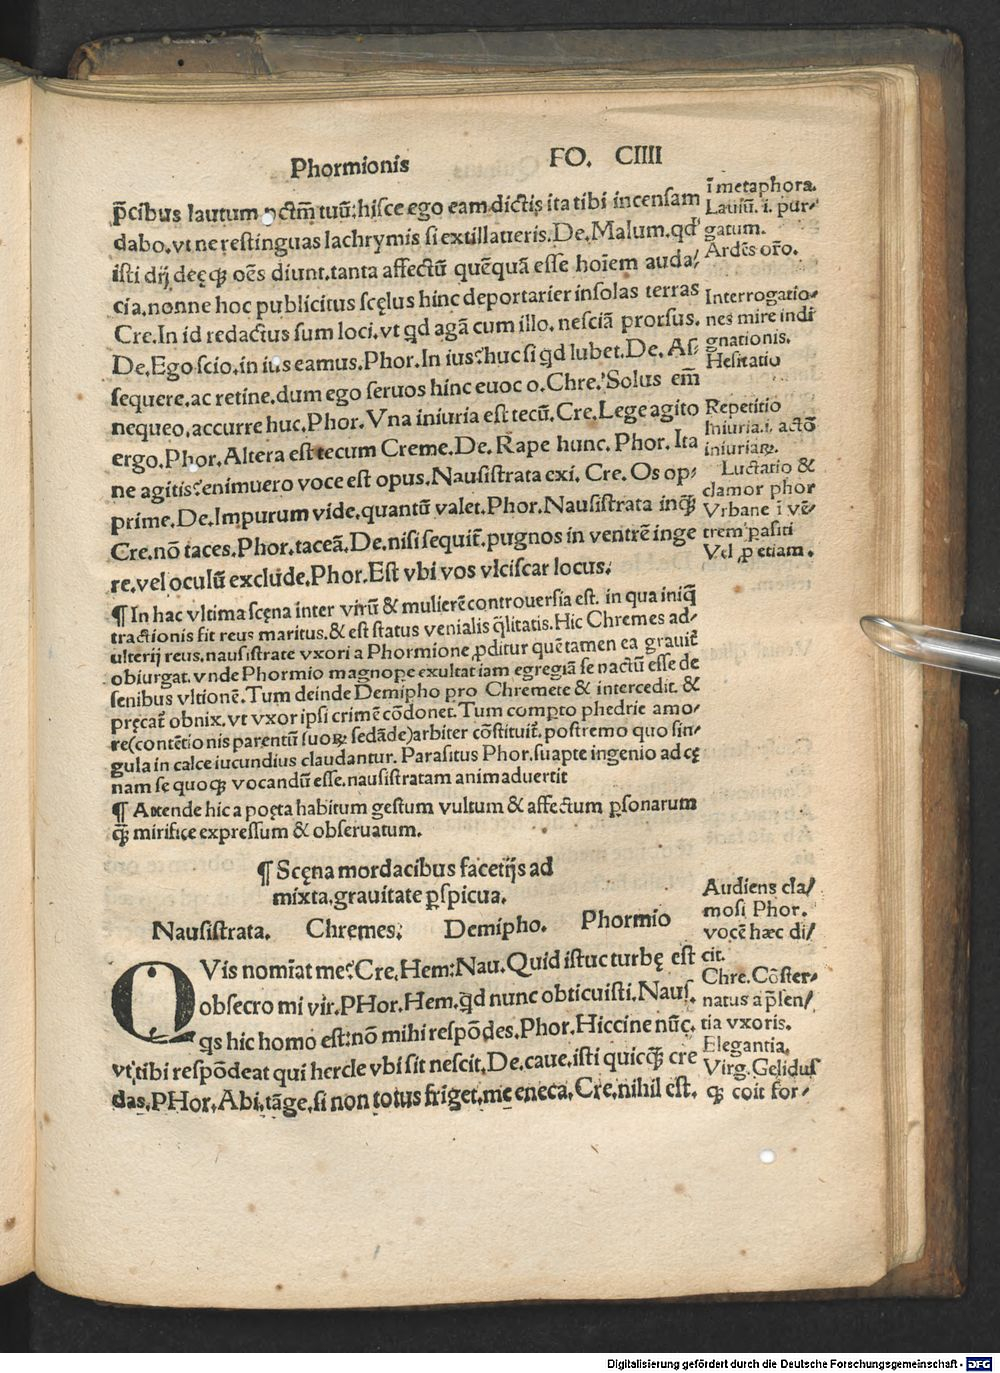 Phormionis FO. CIIII
p̄cibus lautum pctm̄ tuū: hisce ego eam dictis ita tibi incensam
dabo. vt ne restinguas lachrymis si extillaueris. De. Malum. qd'
isti dij deęq; oēs diunt. tanta affectū quēquā esse hoīem auda/
cia. nonne hoc publicitus scęlus hinc deportarier in solas terras
Cre. In id redactus sum loci. vt qd agā cum illo. nesciā prorsus.
De. Ego scio. in ius eamus. Phor. In ius? huc si qd lubet. De. As/
sequere. ac retine. dum ego seruos hinc euoco. Chre. Solus em̄
nequeo. accurre huc. Phor. Vna iniuria est tecū. Cre. Lege agito
ergo. Phor. Altera est tecum Creme. De. Rape hunc. Phor. Ita
ne agitis? enimuero voce est opus. Nausistrata exi. Cre. Os op/
prime. De. Impurum vide. quantū valet. Phor. Nausistrata inq̄
Cre. nō taces. Phor. taceā. De. nisi sequit̄. pugnos in ventrē inge
re. vel oculū exclude. Phor. Est vbi vos vlciscar locus.
ī metaphora.
Lautū. i. pur/
gatum.
Ardēs or̄o.
Interrogatio/
nes mire indi
gnationis.
Hesitatio
Repetitio
Iniuria. i. actō
iniuriaꝝ.
Luctatio &
clamor phor
Vrbane ī vē/
trem pasiti
Vel ꝓ etiam.
¶ In hac vltima scęna inter virū & mulierē controuersia est. in qua iniq̄
tractionis fit reus maritus. & est status venialis q̄litatis. Hic Chremes ad/
ulterij reus. nausistrate vxori a Phormione ꝓditur quē tamen ea grauit̄
obiurgat. vnde Phormio magnope exultat iam egregiā se nactū esse de
senibus vltionē. Tum deinde Demipho pro Chremete & intercedit. &
pręcat̄ obnix. vt vxor ipsi crimē cōdonet. Tum compto phedrie amo/
re (contētionis parentū suoꝝ sedāde) arbiter cōstituit̄. postremo quo sin/
gula in calce iucundius claudantur. Parasitus Phor. suapte ingenio ad cę
nam se quoq; vocandū esse. nausistratam animaduertit
¶ Attende hic a poęta habitum gestum vultum & affectum psonarum
q̄ mirifice expressum & obseruatum.
¶ Scęna mordacibus facetijs ad
mixta. grauitate pspicua.
Nausistrata. Chremes. Demipho. Phormio
QVis nomīat me? Cre. Hem: Nau. Quid istuc turbę est
obsecro mi vir. PHor. Hem. qd nunc obticuisti. Naus.
qs hic homo est: nō mihi respōdes. Phor. Hiccine nūc.
vt tibi respōdeat qui hercle vbi sit nescit. De. caue. isti quicq̄ cre
das. PHor. Abi. tāge. si non totus friget. me eneca. Cre. nihil est.
Audiens cla/
mosi Phor.
vocē hæc di/
cit.
Chre. Cōster/
natus a p̄sen/
tia vxoris.
Elegantia.
Virg. Gelidus
q; coit for/
Digitalisierung gefördert durch die Deutsche Forschungsgemeinschaft - DFG